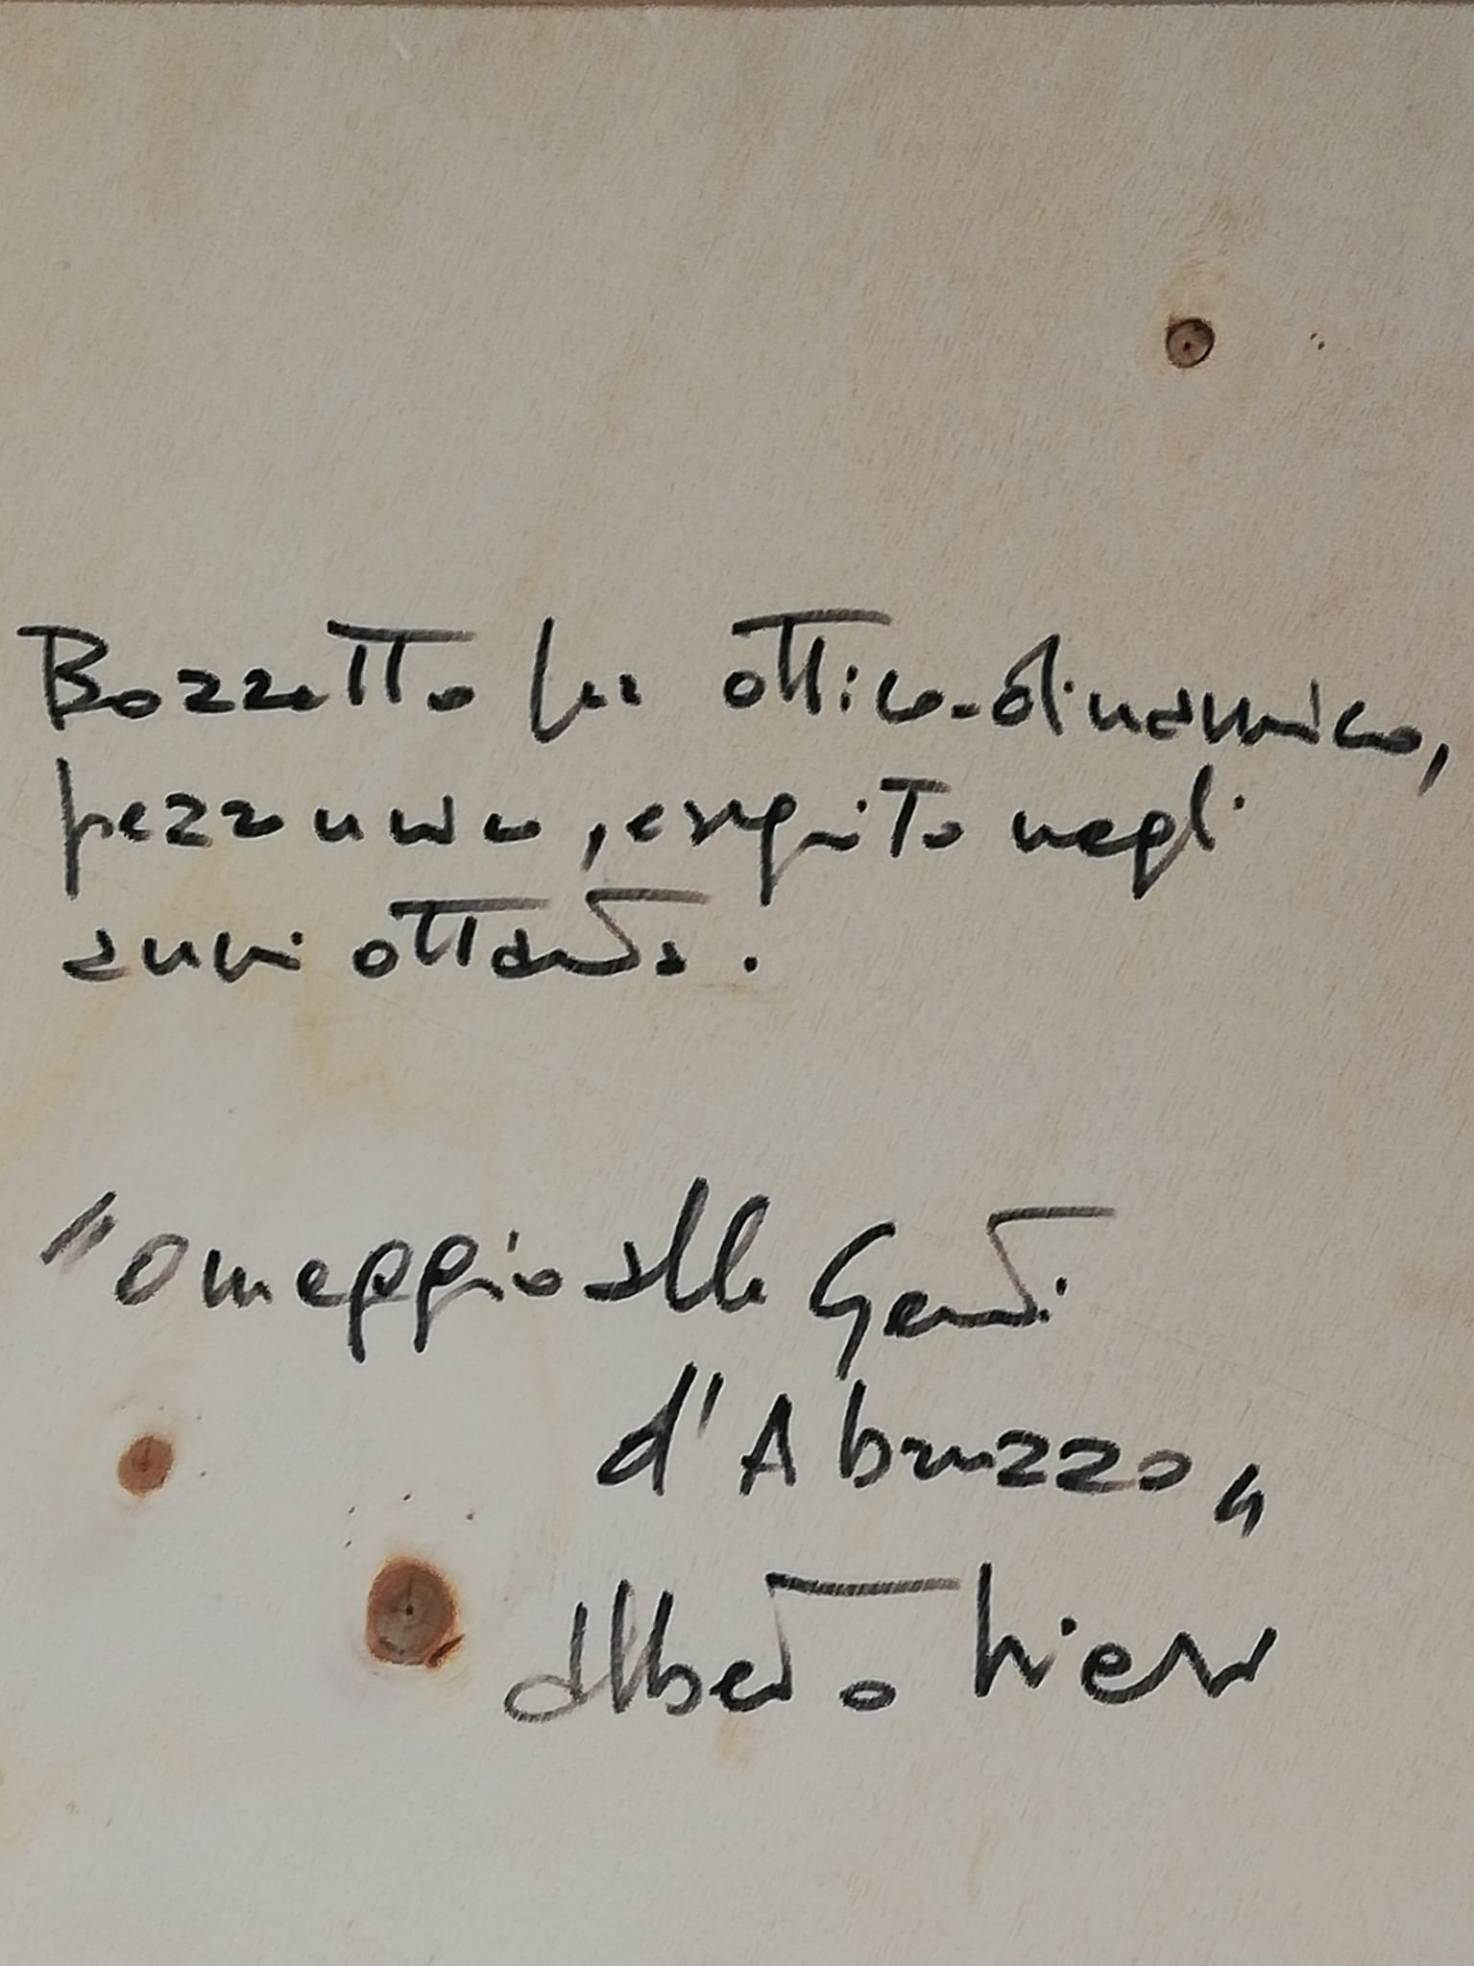 Bozzetto per ottico-dinamico,
pezzo unico, eseguito negli
anni ottanta.
"Omaggio alle Genti
d'Abruzzo"
Alberto